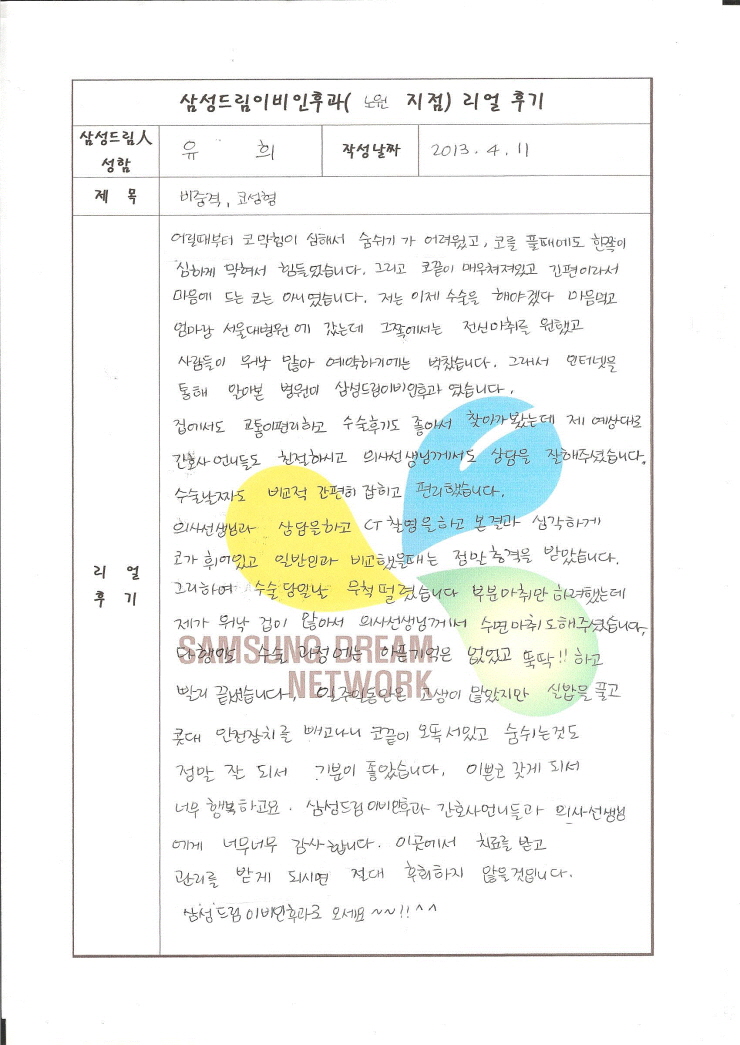 삼성드림이비인후과( 노원 지점) 리얼 후기
삼성드림人 성함
유 희
작성날짜
2013. 4. 11
제 목
비중격, 코성형
리 얼 후 기
어릴때부터 코막힘이 심해서 숨쉬기가 어려웠고, 코를 풀때에도 한쪽이
심하게 막혀서 힘들었습니다. 그리고 코끝이 매우쳐져있고 긴편이라서
마음에 드는 코는 아니였습니다. 저는 이제 수술을 해야겠다 마음먹고
엄마랑 서울대병원에 갔는데 그쪽에서는 전신마취를 원했고
사람들이 워낙 많아 예약하기에는 벅찼습니다. 그래서 인터넷을
통해 알아본 병원이 삼성드림이비인후과 였습니다.
집에서도 교통이편리하고 수술후기도 좋아서 찾아가봤는데 제 예상대로
간호사언니들도 친절하시고 의사선생님께서도 상담을 잘해주셨습니다.
수술날짜도 비교적 간편히 잡히고 편리했습니다.
의사선생님과 상담을하고 CT촬영을하고 본결과 심각하게
코가 휘어있고 일반인과 비교했을때는 정말충격을 받았습니다.
그리하여 수술당일날 무척떨렸습니다 부분마취만 하려했는데
제가 워낙 겁이 많아서 의사선생님께서 수면마취도해주셨습니다.
다행히 수술 과정에는 아픈기억은 없었고 뚝딱!! 하고
빨리 끝났습니다. 일주일동안은 고생이 많았지만 실밥을풀고
콧대 안전장치를 빼고나니 코끝이 오똑서있고 숨쉬는것도
정말 잘 되서 기분이 좋았습니다. 이쁜코 갖게 되서
너무 행복하고요. 삼성드림이비인후과 간호사언니들과 의사선생님
에게 너무너무 감사합니다. 이곳에서 치료를 받고
관리를 받게 되시면 절대 후회하지 않을것입니다.
삼성드림이비인후과로 오세요~~!!^^
SAMSUNG DREAM
NETWORK